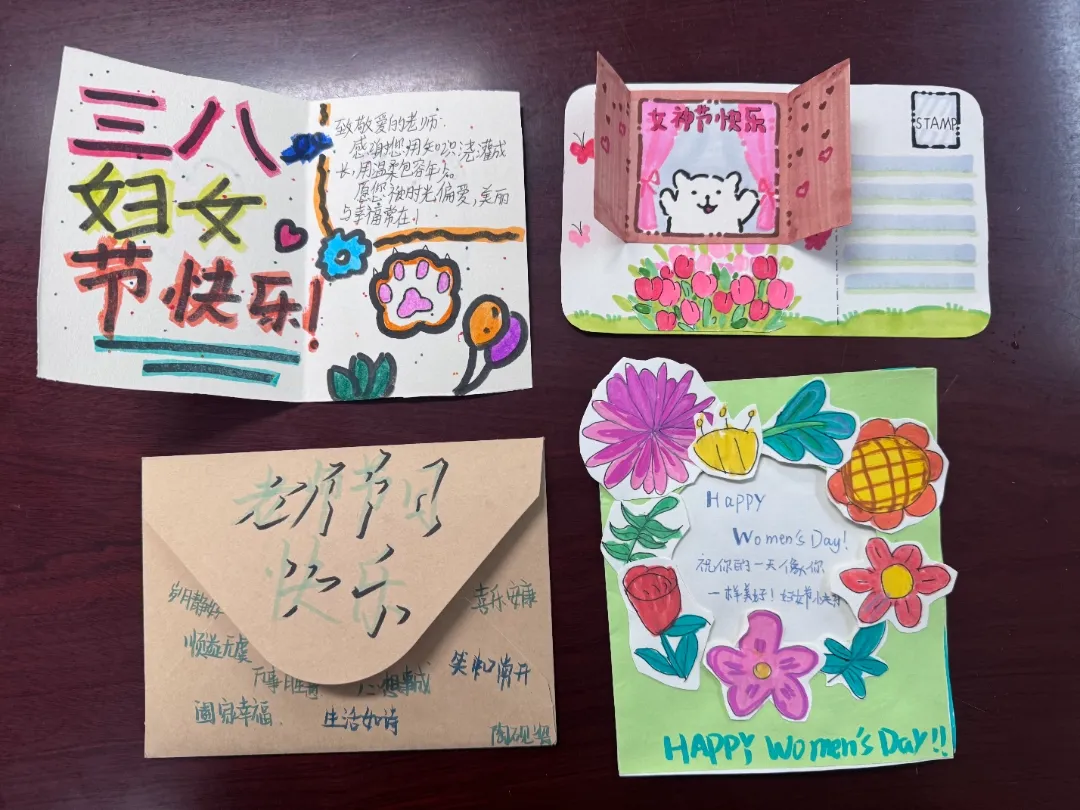 三八
妇女
节快乐!
致敬爱的老师:
感谢您用知识浇灌成
长,用温柔包容年少。
愿您被时光偏爱,美丽
与幸福常在!
女神节快乐
STAMP
老师节日
快乐
岁月静好
喜乐安康
顺遂无虞
万事胜意
心想事成
笑口常开
阖家幸福
生活如诗
Happy
Women's Day!
祝你的一天像你
一样美好!妇女节快乐
HAPPY Women's Day!!